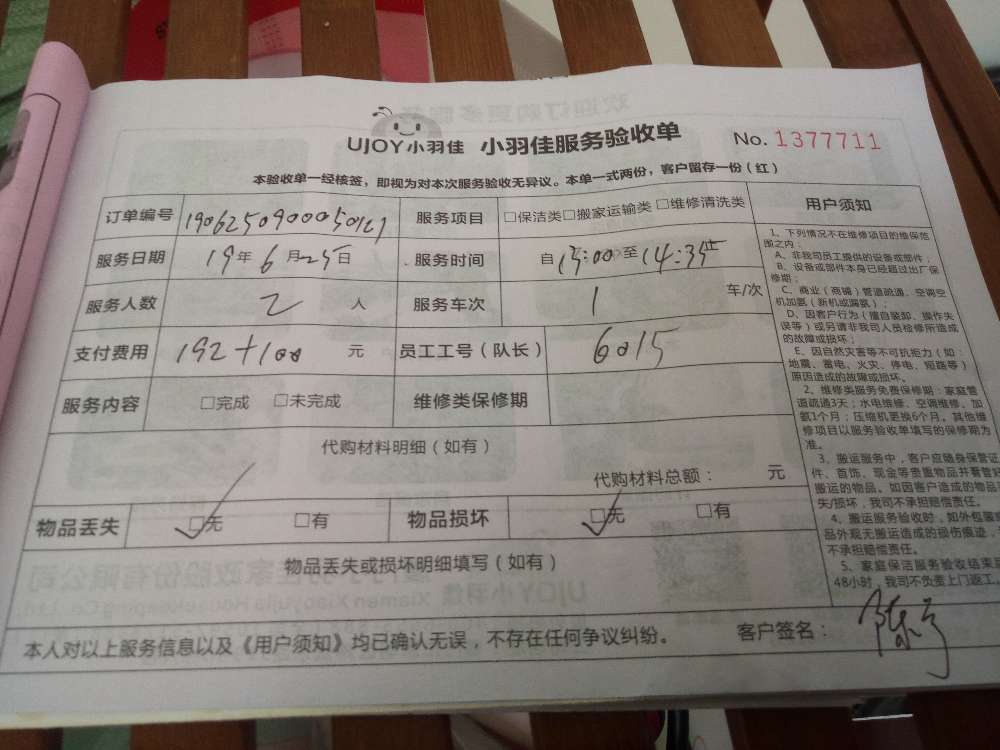 UJOY小羽佳 小羽佳服务验收单 No.1377711
本验收单一经核签，即视为对本次服务验收无异议。本单一式两份，客户留存一份（红）
订单编号 服务项目 □保洁类□搬家运输类□维修清洗类 用户须知
服务日期 19年6月25日 服务时间 自13:00至14:35
服务人数 2 人 服务车次 1 车/次
支付费用 192+100 元 员工工号（队长） 6015
服务内容 □完成 □未完成 维修类保修期
代购材料明细（如有）
代购材料总额： 元
物品丢失 □无 □有 物品损坏 □无 □有
物品丢失或损坏明细填写（如有）
本人对以上服务信息以及《用户须知》均已确认无误，不存在任何争议纠纷。 客户签名：
1、下列情况不在维修项目的维保范
围之内：
A、非我司员工提供的设备或部件；
B、设备或部件本身已经超过出厂保
修期；
C、商业（商铺）管道疏通、空调空
机加氨（新机或漏氨）；
D、因客户行为（擅自装卸、操作失
误等）或另请非我司人员检修所造成
的故障或损坏；
E、因自然灾害等不可抗拒力（如：
地震、雷电、火灾、停电、短路等）
原因造成的故障或损坏。
2、维修类服务免费保修期：家庭管
道疏通3天；水电维修、空调维修、加
氨1个月；压缩机更换6个月。其他维
修项目以服务验收单填写的保修期为
准。
3、搬运服务中，客户应随身保管证
件、首饰、现金等贵重物品并看管好
搬运的物品。如因客户造成的物品丢
失/损坏，我司不承担赔偿责任。
4、搬运服务验收时，如外包装
品外观无搬运造成的损伤痕迹，
不承担赔偿责任。
5、家庭保洁服务验收结束
48小时，我司不负责上门返工